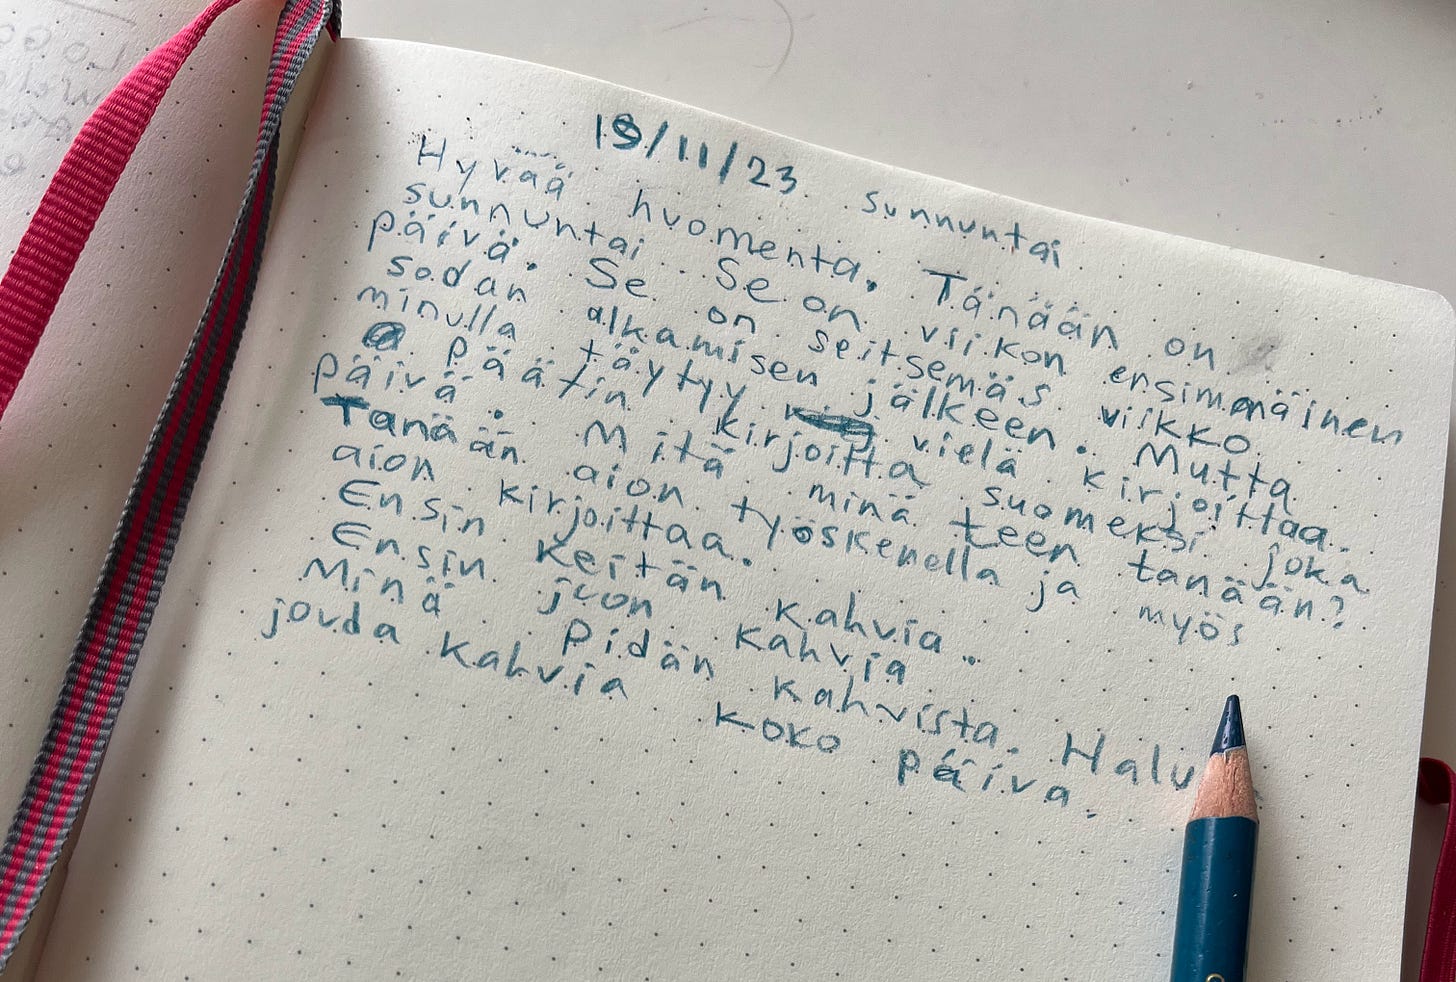 19/11/23 sunnuntai
Hyvää huomenta. Tänään on
sunnuntai. Se on viikon ensimmäinen
päivä. Se on seitsemäs viikko
sodan alkamisen jälkeen. Mutta
minulla täytyy vielä kirjoittaa.
päätin kirjoitta suomeksi joka
päivä. Mitä minä teen tanään?
Tanään aion työskenella ja myös
aion kirjoittaa.
Ensin keitän kahvia.
Ensin juon kahvia
Minä pidän kahvista. Halu
jouda kahvia koko päiva.